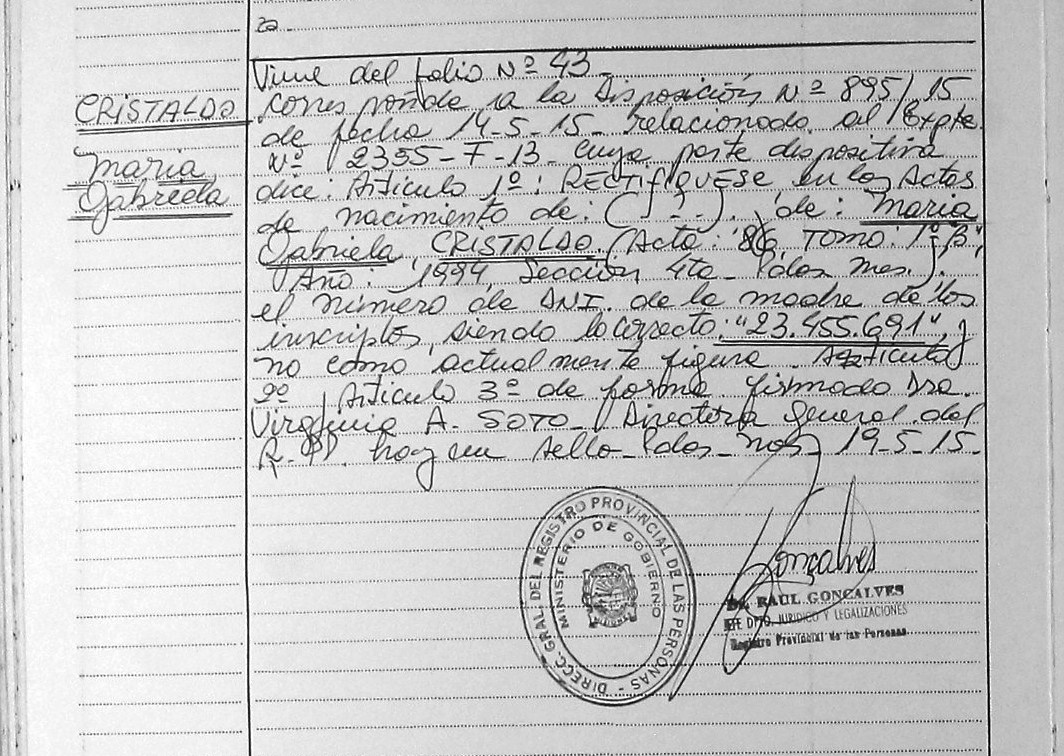 Viene del folio Nº 43 -
CRISTALDO
Maria
Gabriela
Corresponde a la Disposición Nº 895/15
de fecha 14-5-15- relacionado al Expte.
Nº 2355-F-13- cuya parte dispositiva
dice: Artículo 1º: RECTIFIQUESE en los Actas
de nacimiento de: (...). de: Maria
Gabriela CRISTALDO (Acta: 86, Tomo: 1º "B",
Año: 1994, Sección 4ta- Pdas Mnes.).
el número de DNI. de la madre de los
inscriptos, siendo lo correcto: "23.455.691", y
no como actualmente figura. Artículo
2º Artículo 3º de forma, firmado Dra.
Virginia A. SOTO- Directora General del
R.P.P. hay un sello- Pdas- Mnes 19-5-15-
DIRECC. GRAL. DEL REGISTRO PROVINCIAL DE LAS PERSONAS -
MINISTERIO DE GOBIERNO
MISIONES
Gonçalves
Dr. RAUL GONCALVES
JEFE DPTO. JURIDICO Y LEGALIZACIONES
Registro Provincial de las Personas